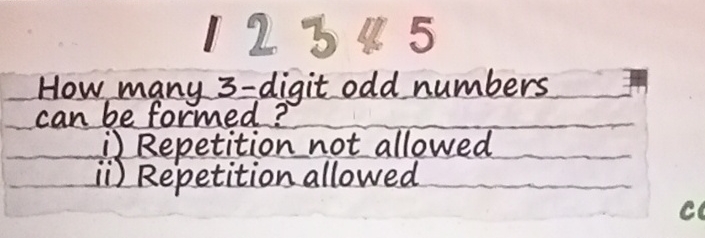 1 2 3 4 5
How many 3-digit odd numbers
can be formed ?
i) Repetition not allowed
ii) Repetition allowed